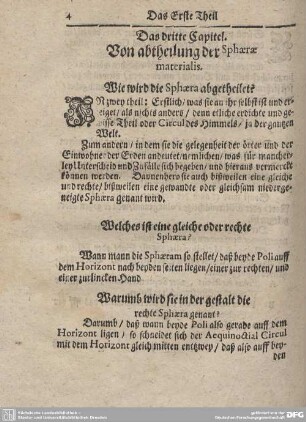 4 Das Erste Theil
Das dritte Capitel.
Von abtheilung der Sphæræ
materialis.
Wie wird die Sphæra abgetheilet?
IN zwey theil: Erstlich/ was sie an ihr selbst ist und er-
eiget/ als nichts anders/ denn etliche erdichte und ge-
wisse Theil oder Circul des Himmels/ ja der gantzen
Welt.
Zum andern/ in dem sie die gelegenheit der örter und der
Einwohner der Erden andeutet/ nemlichen/ was für mancher-
ley Unterscheid und Zufälle sich begeben/ und hieraus vermerckt
können werden. Daunenhero sie auch bißweilen eine gleiche
und rechte/ bißweilen eine gewandte oder gleichsam niederge-
neigte Sphæra genant wird.
Welches ist eine gleiche oder rechte
Sphæra?
Wann mann die Sphæram so stellet/ daß beyde Poli auff
dem Horizont nach beyden seiten liegen/ einer zur rechten/ und
einer zur lincken Hand
Warumb wird sie in der gestalt die
rechte Sphæra genant?
Darumb/ daß wann beyde Poli also gerade auff dem
Horizont ligen/ so schneidet sich der Aequinoctial Circul
mit dem Horizont gleich mitten entzwey/ daß also auff bey-
den